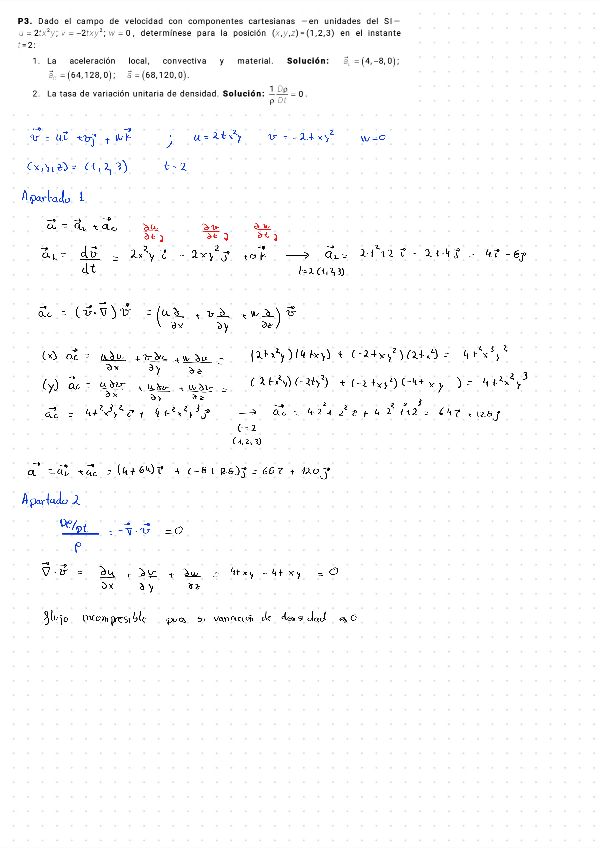 P3. Dado el campo de velocidad con componentes cartesianas —en unidades del SI—
u = 2tx²y; v = −2txy²; w = 0, determínese para la posición (x,y,z) = (1,2,3) en el instante
t = 2:
1. La aceleración local, convectiva y material. Solución: a⃗ₗ = (4,−8,0);
a⃗c = (64,128,0); a⃗ = (68,120,0).
2. La tasa de variación unitaria de densidad. Solución: 1/ρ Dρ/Dt = 0.
v⃗ = uı⃗ + vȷ⃗ + wk⃗ ; u = 2tx²y v = −2txy² w=0
(x,y,z) = (1,2,3) t=2
Apartado 1
a⃗ = a⃗ₗ + a⃗c ∂u/∂t ∂v/∂t
a⃗ₗ = dv⃗/dt = 2x²y ı⃗ − 2xy² ȷ⃗ + 0k⃗ → a⃗ₗ = 2·1²·2 ı⃗ − 2·1·4 ȷ⃗ = 4ı⃗ − 8ȷ⃗
t=2 (1,2,3)
a⃗c = (v⃗·∇⃗) v⃗ = (u ∂/∂x + v ∂/∂y + w ∂/∂z) v⃗
(x) a⃗c = u ∂u/∂x + v ∂u/∂y + w ∂u/∂z = (2tx²y)(4txy) + (−2txy²)(2tx²) = 4t²x³y²
(y) a⃗c = u ∂v/∂x + v ∂v/∂y + w ∂v/∂z = (2tx²y)(−2ty²) + (−2txy²)(−4txy) = 4t²x²y³
a⃗c = 4t²x³y² ı⃗ + 4t²x²y³ ȷ⃗ → a⃗c = 4·2²·1·2² ı⃗ + 4·2²·1·2³ = 64ı⃗ + 128ȷ⃗
t=2
(1,2,3)
a⃗ = a⃗ₗ + a⃗c = (4+64)ı⃗ + (−8+128)ȷ⃗ = 68ı⃗ + 120ȷ⃗
Apartado 2
Dρ/Dt / ρ = −∇⃗·v⃗ = 0
∇⃗·v⃗ = ∂u/∂x + ∂v/∂y + ∂w/∂z = 4txy − 4txy = 0
flujo incompresible pues su variación de densidad es 0